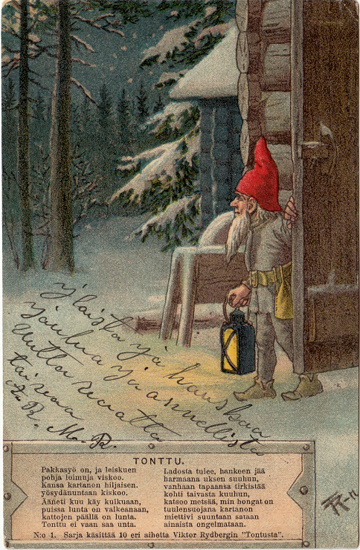 Iloista ja hauskaa
joulua ja onnellista
Uutta vuotta
toivoo
TONTTU.
Pakkasyö on, ja leiskuen
pohja loimuja viskoo.
Kansa kartanon hiljaisen
yösydänuntaan kiskoo.
Ääneti kuu käy kulkuaan,
puissa lunta on valkeanaan,
kattojen päällä on lunta.
Tonttu ei vaan saa unta.
Ladosta tulee, hankeen jää
harmaana uksen suuhun,
vanhaan tapaansa tirkistää
kohti taivasta kuuhun,
katsoo metsää, min hongat on
tuulensuojana kartanon
miettivi suuntaan sataan
ainaista ongelmataan.
N:o 1. Sarja käsittää 10 eri aihetta Viktor Rydbergin "Tontusta".